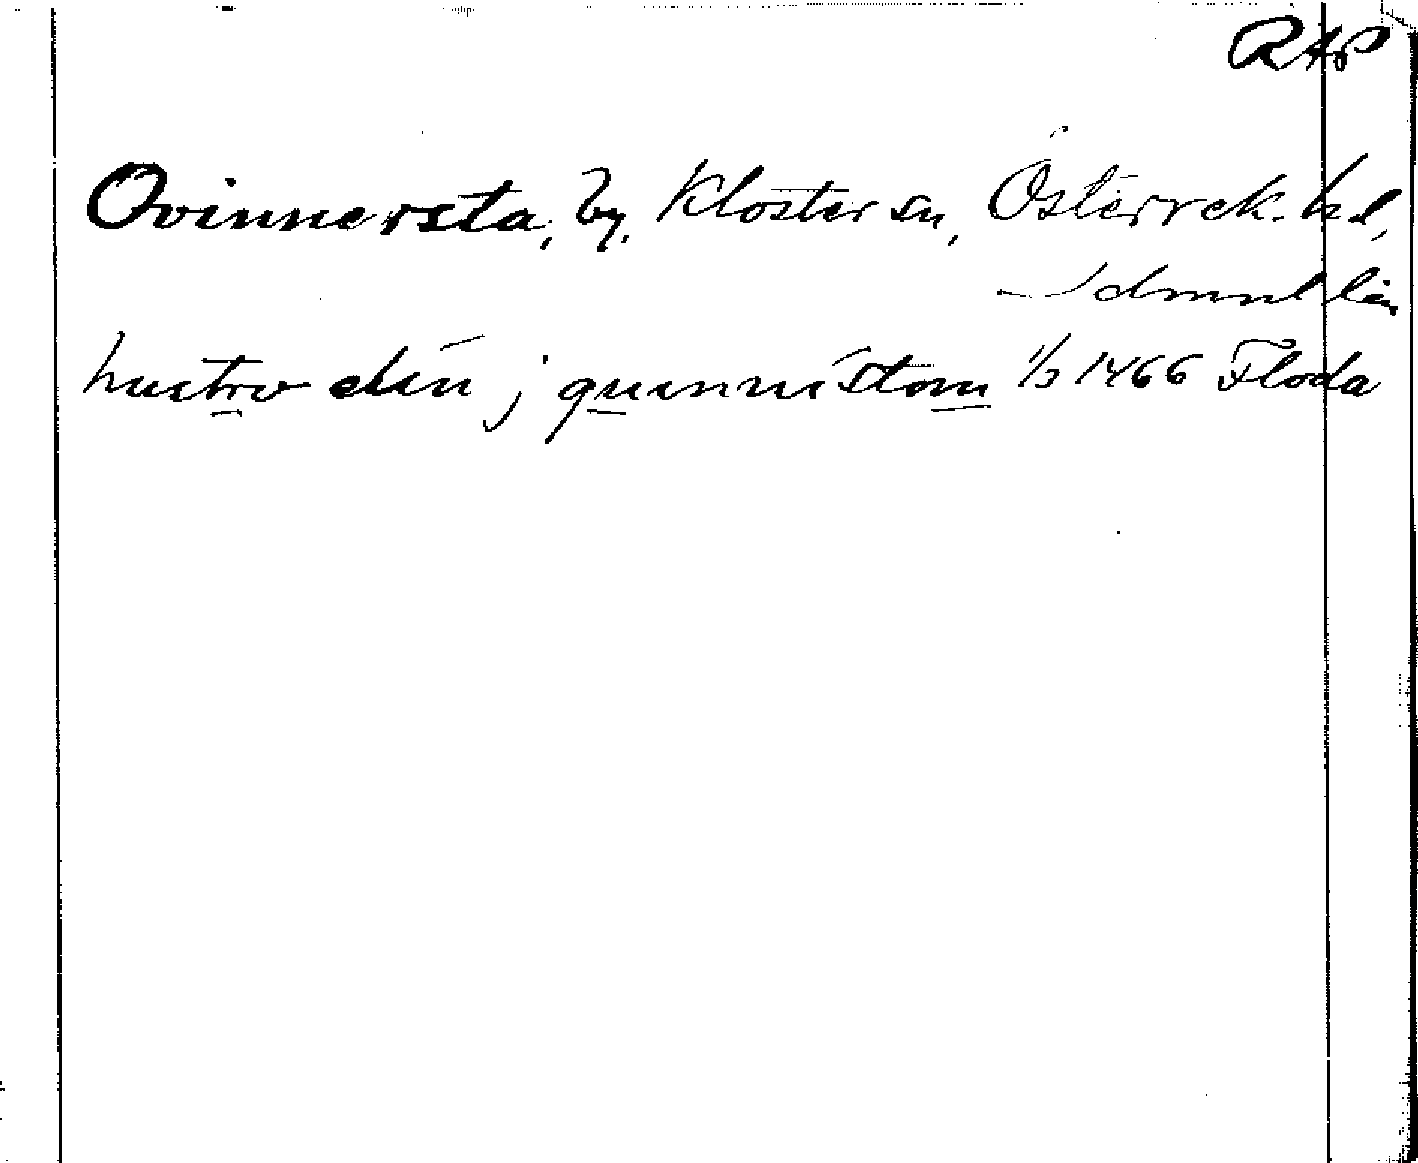 RAP
Ovinnersta, by, Kloster sn, Österrek. hd,
Sdmnl län
hustrv elin j quinnistom 1/3 1466 Floda